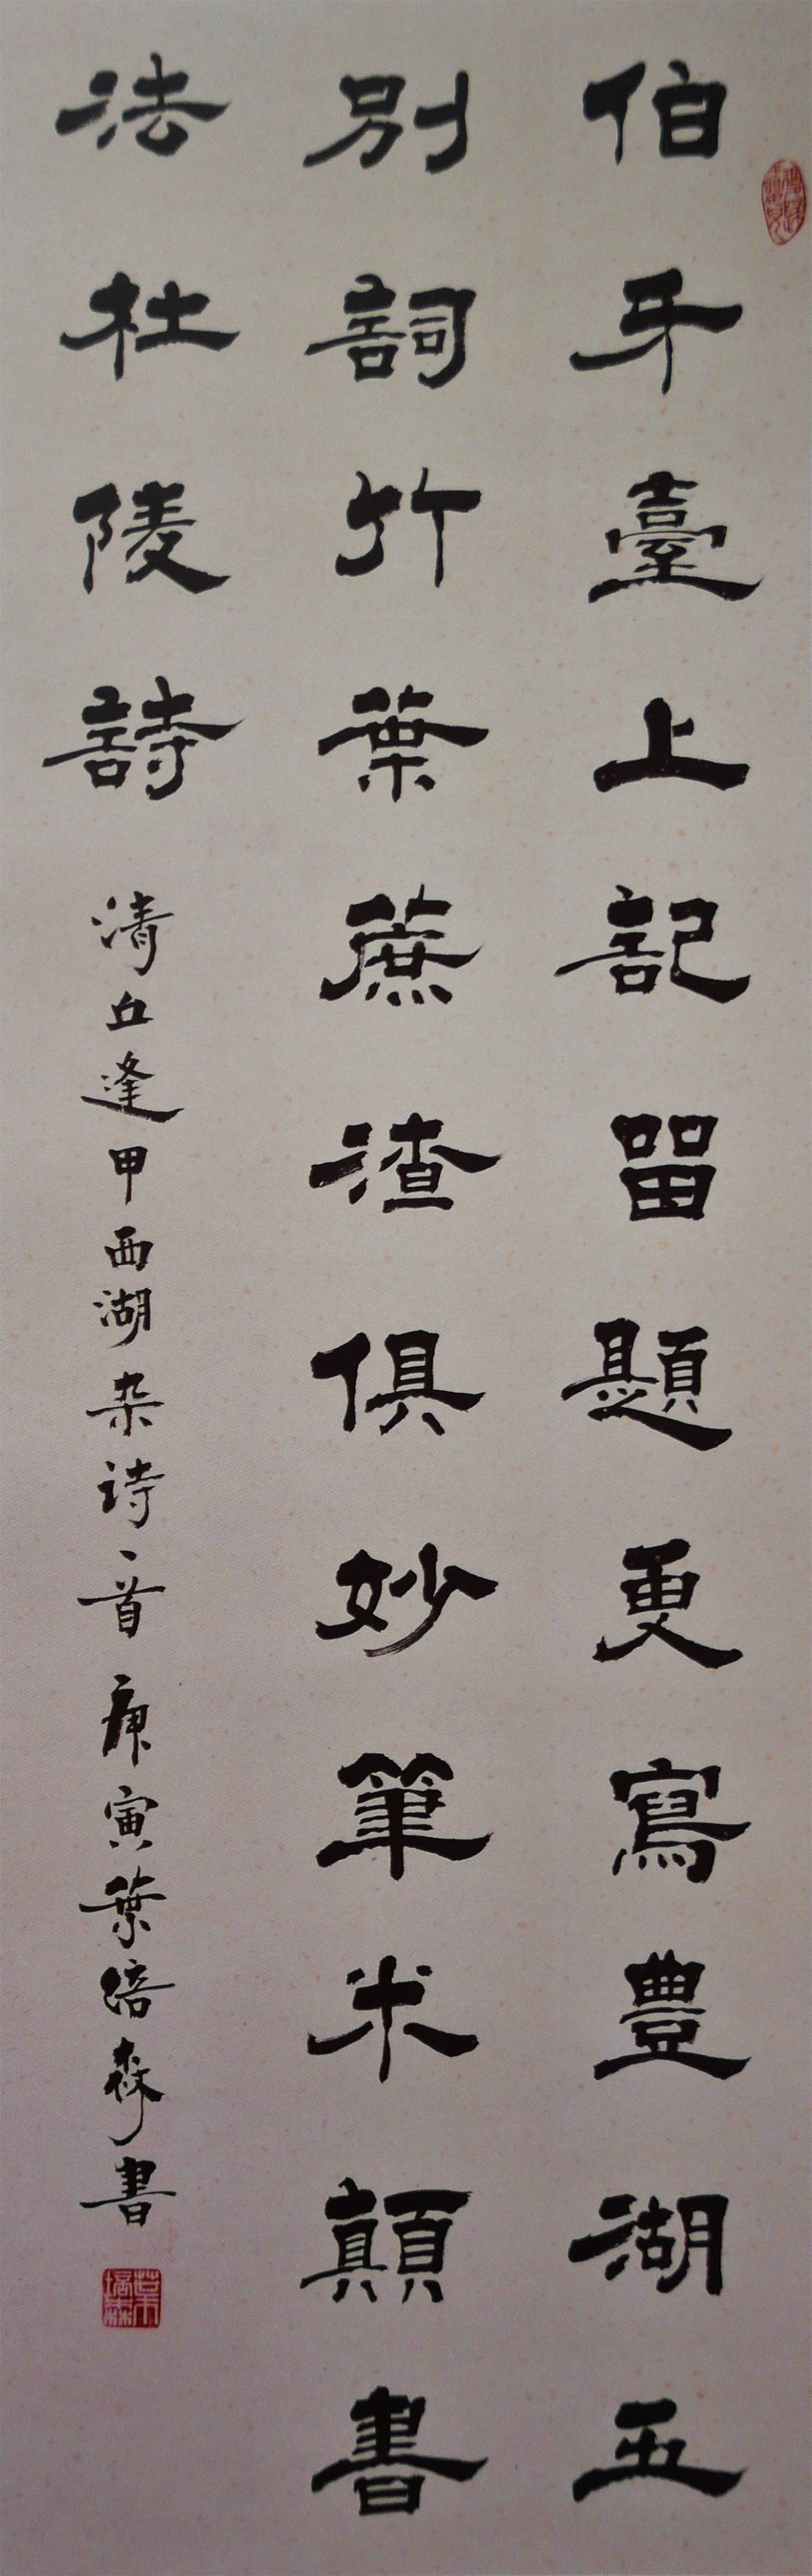 伯牙臺上記留題更寫豊湖五
別詞竹葉蔗渣俱妙筆米顛書
法杜陵詩
清丘逢甲西湖杂诗一首庚寅葉培森書
葉培森